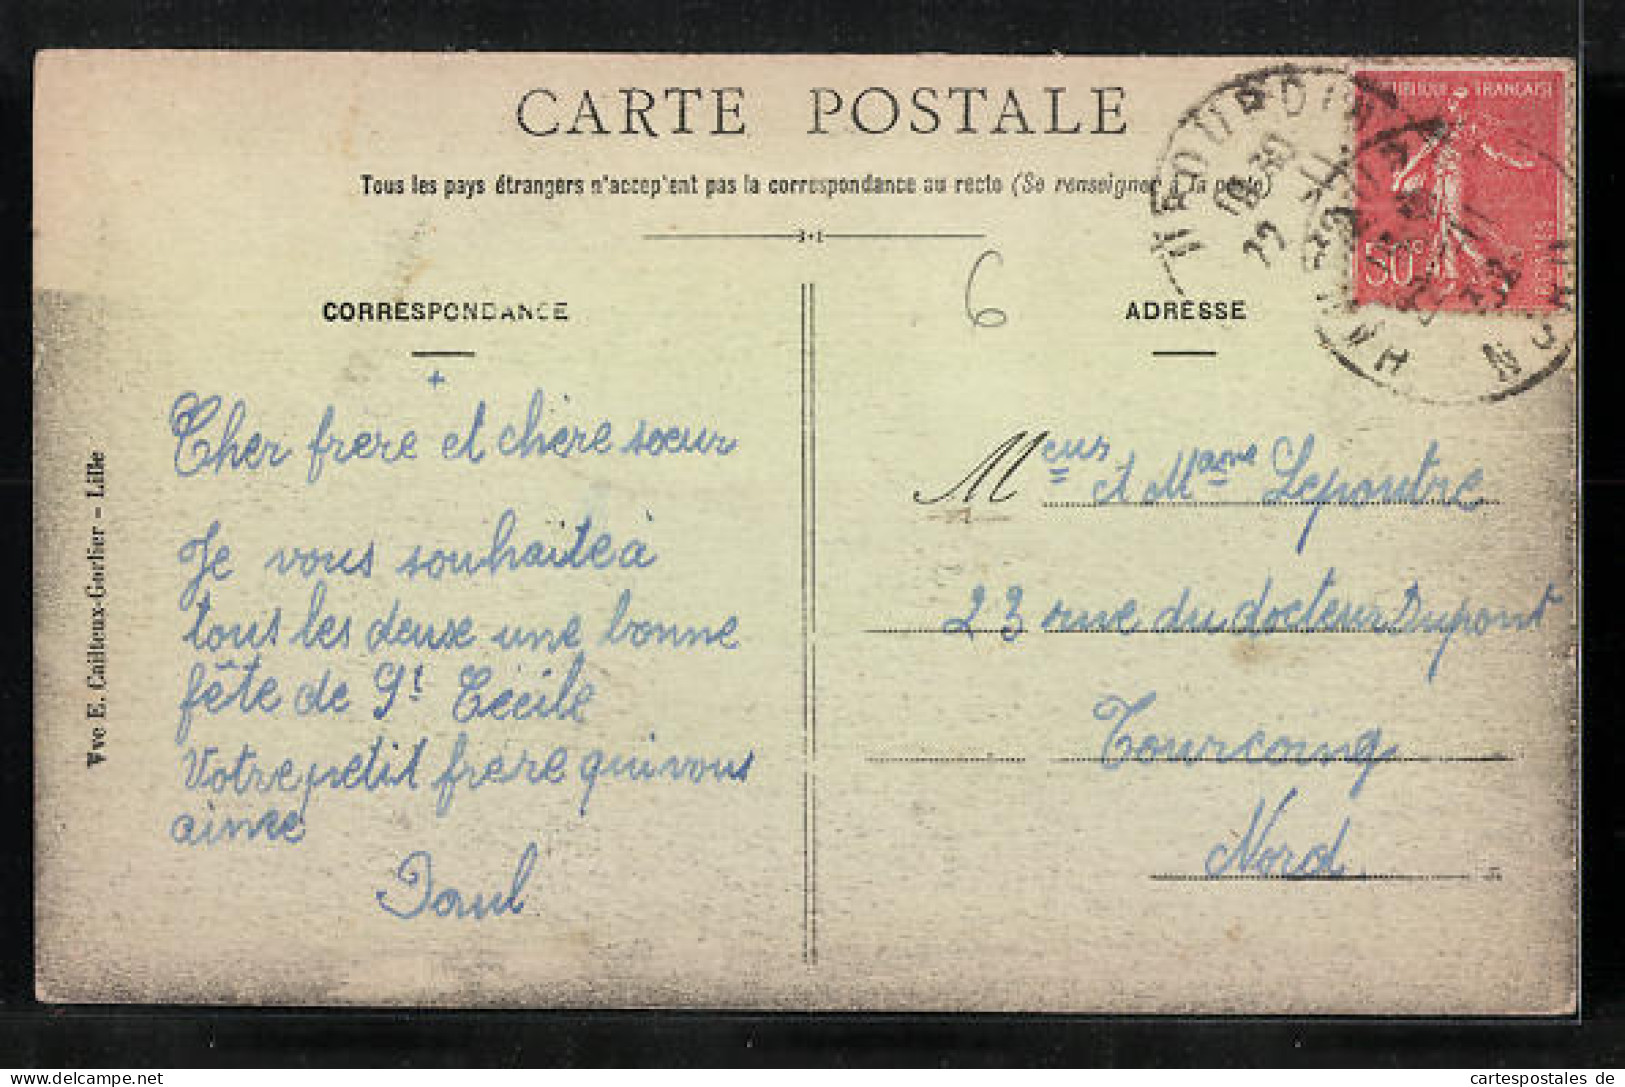 CARTE POSTALE
Tous les pays étrangers n'accep'ent pas la correspondance au recto (Se renseigner à la poste)
CORRESPONDANCE
6
ADRESSE
RÉPUBLIQUE FRANÇAISE
50c
POSTES
Cher frere et chère sœur
Je vous souhaite à
tous les deux une bonne
fête de St Cécile
Votre petit frere qui vous
aime
Paul
Meur et Mame Lepoutre
23 rue du docteur Dupont
Tourcoing
Nord
Vve E. Cailteux-Gorlier – Lille
cartespostales de